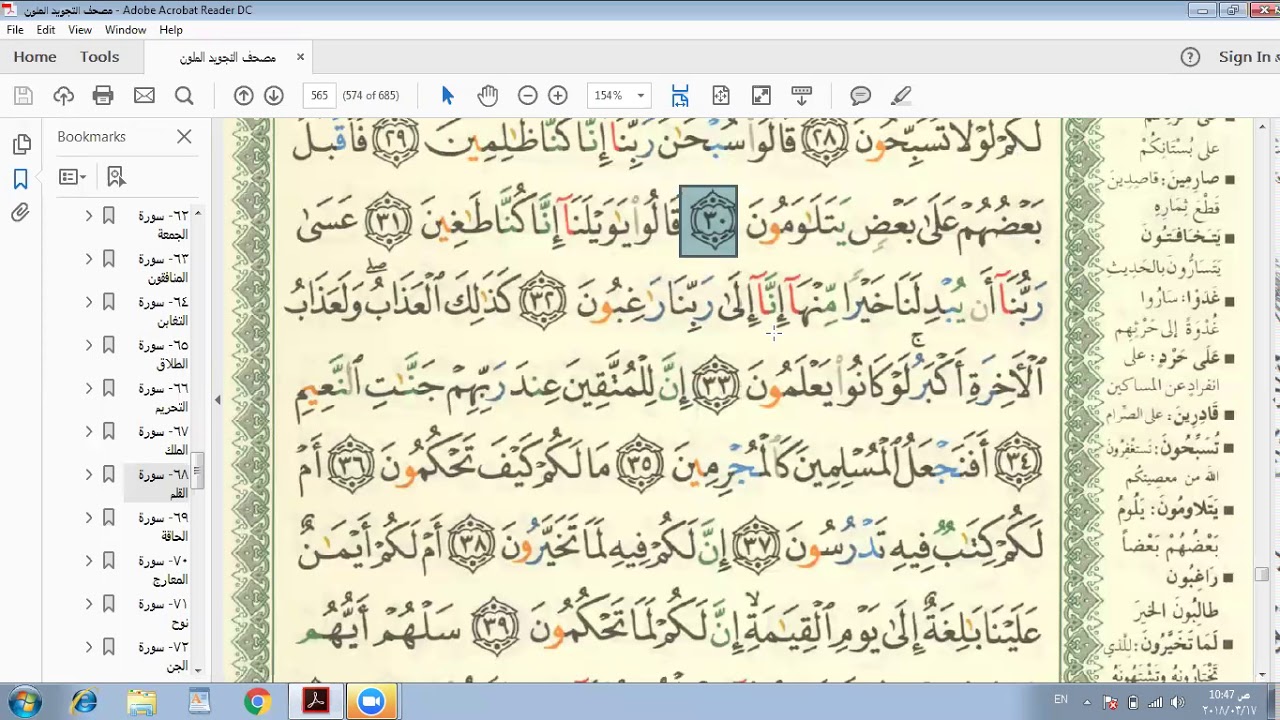 مصحف التجويد الملون - Adobe Acrobat Reader DC
File Edit View Window Help
Home Tools مصحف التجويد الملون × Sign In
565 (574 of 685) 154%
Bookmarks
٦٢- سورة
الجمعة
٦٣- سورة
المنافقون
٦٤- سورة
التغابن
٦٥- سورة
الطلاق
٦٦- سورة
التحريم
٦٧- سورة
الملك
٦٨- سورة
القلم
٦٩- سورة
الحاقة
٧٠- سورة
المعارج
٧١- سورة
نوح
٧٢- سورة
الجن
لَكُمْ لَوْلَا تُسَبِّحُونَ ٢٨ قَالُوا۟ سُبْحَٰنَ رَبِّنَآ إِنَّا كُنَّا ظَٰلِمِينَ ٢٩ فَأَقْبَلَ
بَعْضُهُمْ عَلَىٰ بَعْضٍ يَتَلَٰوَمُونَ ٣٠ قَالُوا۟ يَٰوَيْلَنَآ إِنَّا كُنَّا طَٰغِينَ ٣١ عَسَىٰ
رَبُّنَآ أَن يُبْدِلَنَا خَيْرًا مِّنْهَآ إِنَّآ إِلَىٰ رَبِّنَا رَٰغِبُونَ ٣٢ كَذَٰلِكَ ٱلْعَذَابُ ۖ وَلَعَذَابُ
ٱلْءَاخِرَةِ أَكْبَرُ ۚ لَوْ كَانُوا۟ يَعْلَمُونَ ٣٣ إِنَّ لِلْمُتَّقِينَ عِندَ رَبِّهِمْ جَنَّٰتِ ٱلنَّعِيمِ
٣٤ أَفَنَجْعَلُ ٱلْمُسْلِمِينَ كَٱلْمُجْرِمِينَ ٣٥ مَا لَكُمْ كَيْفَ تَحْكُمُونَ ٣٦ أَمْ
لَكُمْ كِتَٰبٌ فِيهِ تَدْرُسُونَ ٣٧ إِنَّ لَكُمْ فِيهِ لَمَا تَخَيَّرُونَ ٣٨ أَمْ لَكُمْ أَيْمَٰنٌ
عَلَيْنَا بَٰلِغَةٌ إِلَىٰ يَوْمِ ٱلْقِيَٰمَةِ ۙ إِنَّ لَكُمْ لَمَا تَحْكُمُونَ ٣٩ سَلْهُمْ أَيُّهُم
على بُسْتَانِكُمْ
■ صارِمِينَ: قاصِدِينَ
قَطْعَ ثِمَارِهِ
■ يَتَخَافَتُونَ
يَتَسَارُّونَ بالحَدِيثِ
■ غَدَوْا: سَارُوا
غُدْوَةً إلى حَرْثِهِم
■ عَلَى حَرْدٍ: على
انفرادٍ عن المساكين
■ قَادِرِينَ: على الصِّرام
■ تُسَبِّحُونَ: تستغفرون
الله من معصيتكم
■ يَتَلاومُونَ: يَلُومُ
بَعْضُهُمْ بَعْضاً
■ رَاغِبُون
طالِبُونَ الخَيرَ
■ لَمَا تَخَيَّرُونَ: للَّذي
تَخْتَارُونَهُ وتَشْتَهُونَهُ
EN 10:47 ص
٢٠١٨/٠٣/١٧